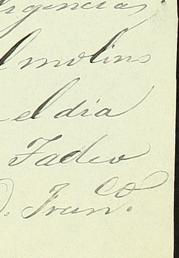 rgencias
l molino
el dia
Tadeo
D. Fran.co